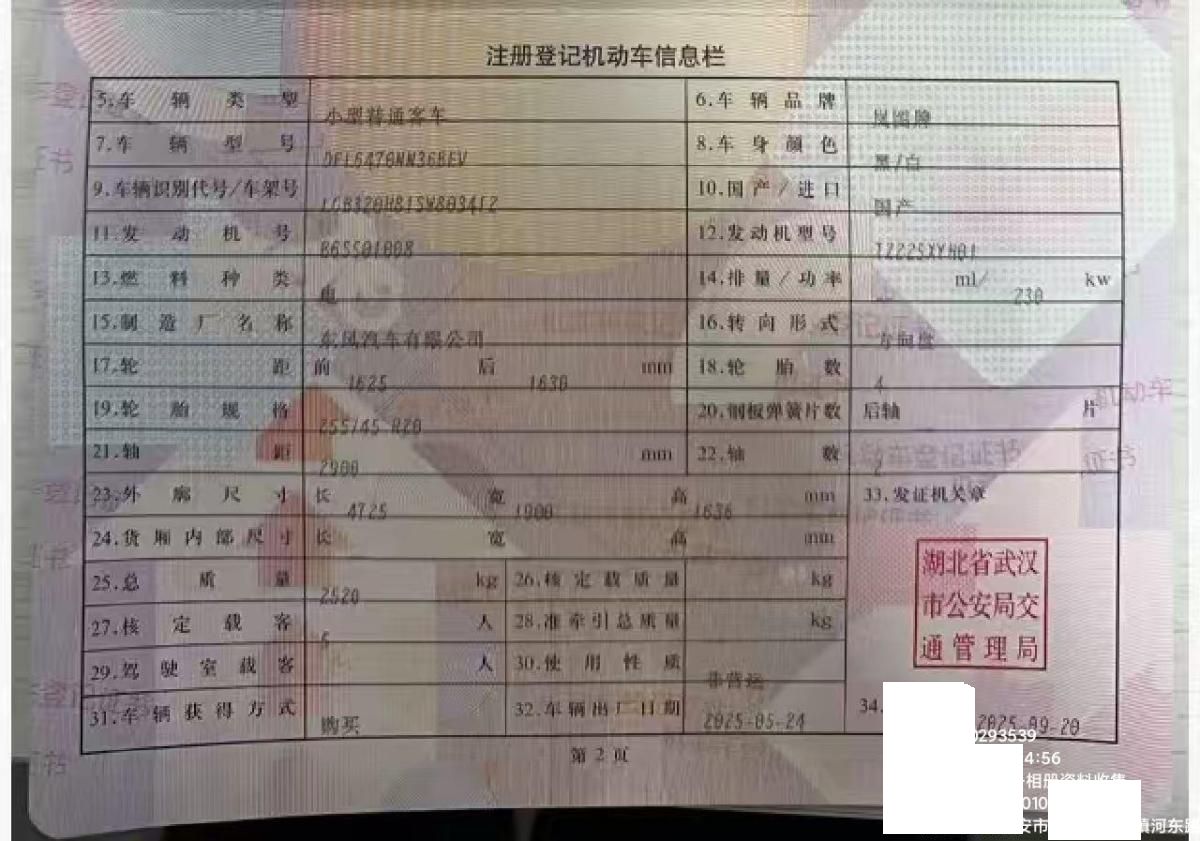 注册登记机动车信息栏
5.车辆类型 小型普通客车 6.车辆品牌
7.车辆型号 DFL6470NN36BEV 8.车身颜色 黑/白
9.车辆识别代号/车架号 10.国产/进口 国产
11.发动机号 B65S01008 12.发动机型号 TZ225XYH01
13.燃料种类 电 14.排量/功率 ml/ 230 kw
15.制造厂名称 东风汽车有限公司 16.转向形式 方向盘
17.轮距 前 1625 后 1630 mm 18.轮胎数 4
19.轮胎规格 255/45 R20 20.钢板弹簧片数 后轴 片
21.轴距 2900 mm 22.轴数 2
23.外廓尺寸 长 4725 宽 1900 高 1636 mm 33.发证机关章
24.货厢内部尺寸 长 宽 高 mm
25.总质量 2520 kg 26.核定载质量 kg
湖北省武汉
市公安局交
通管理局
27.核定载客 5 人 28.准牵引总质量 kg
29.驾驶室载客 人 30.使用性质 非营运
31.车辆获得方式 购买 32.车辆出厂日期 2025-05-24 34. 2025-09-20
第2页
0293539
4:56
相册资料收集
010
安市 镇河东路